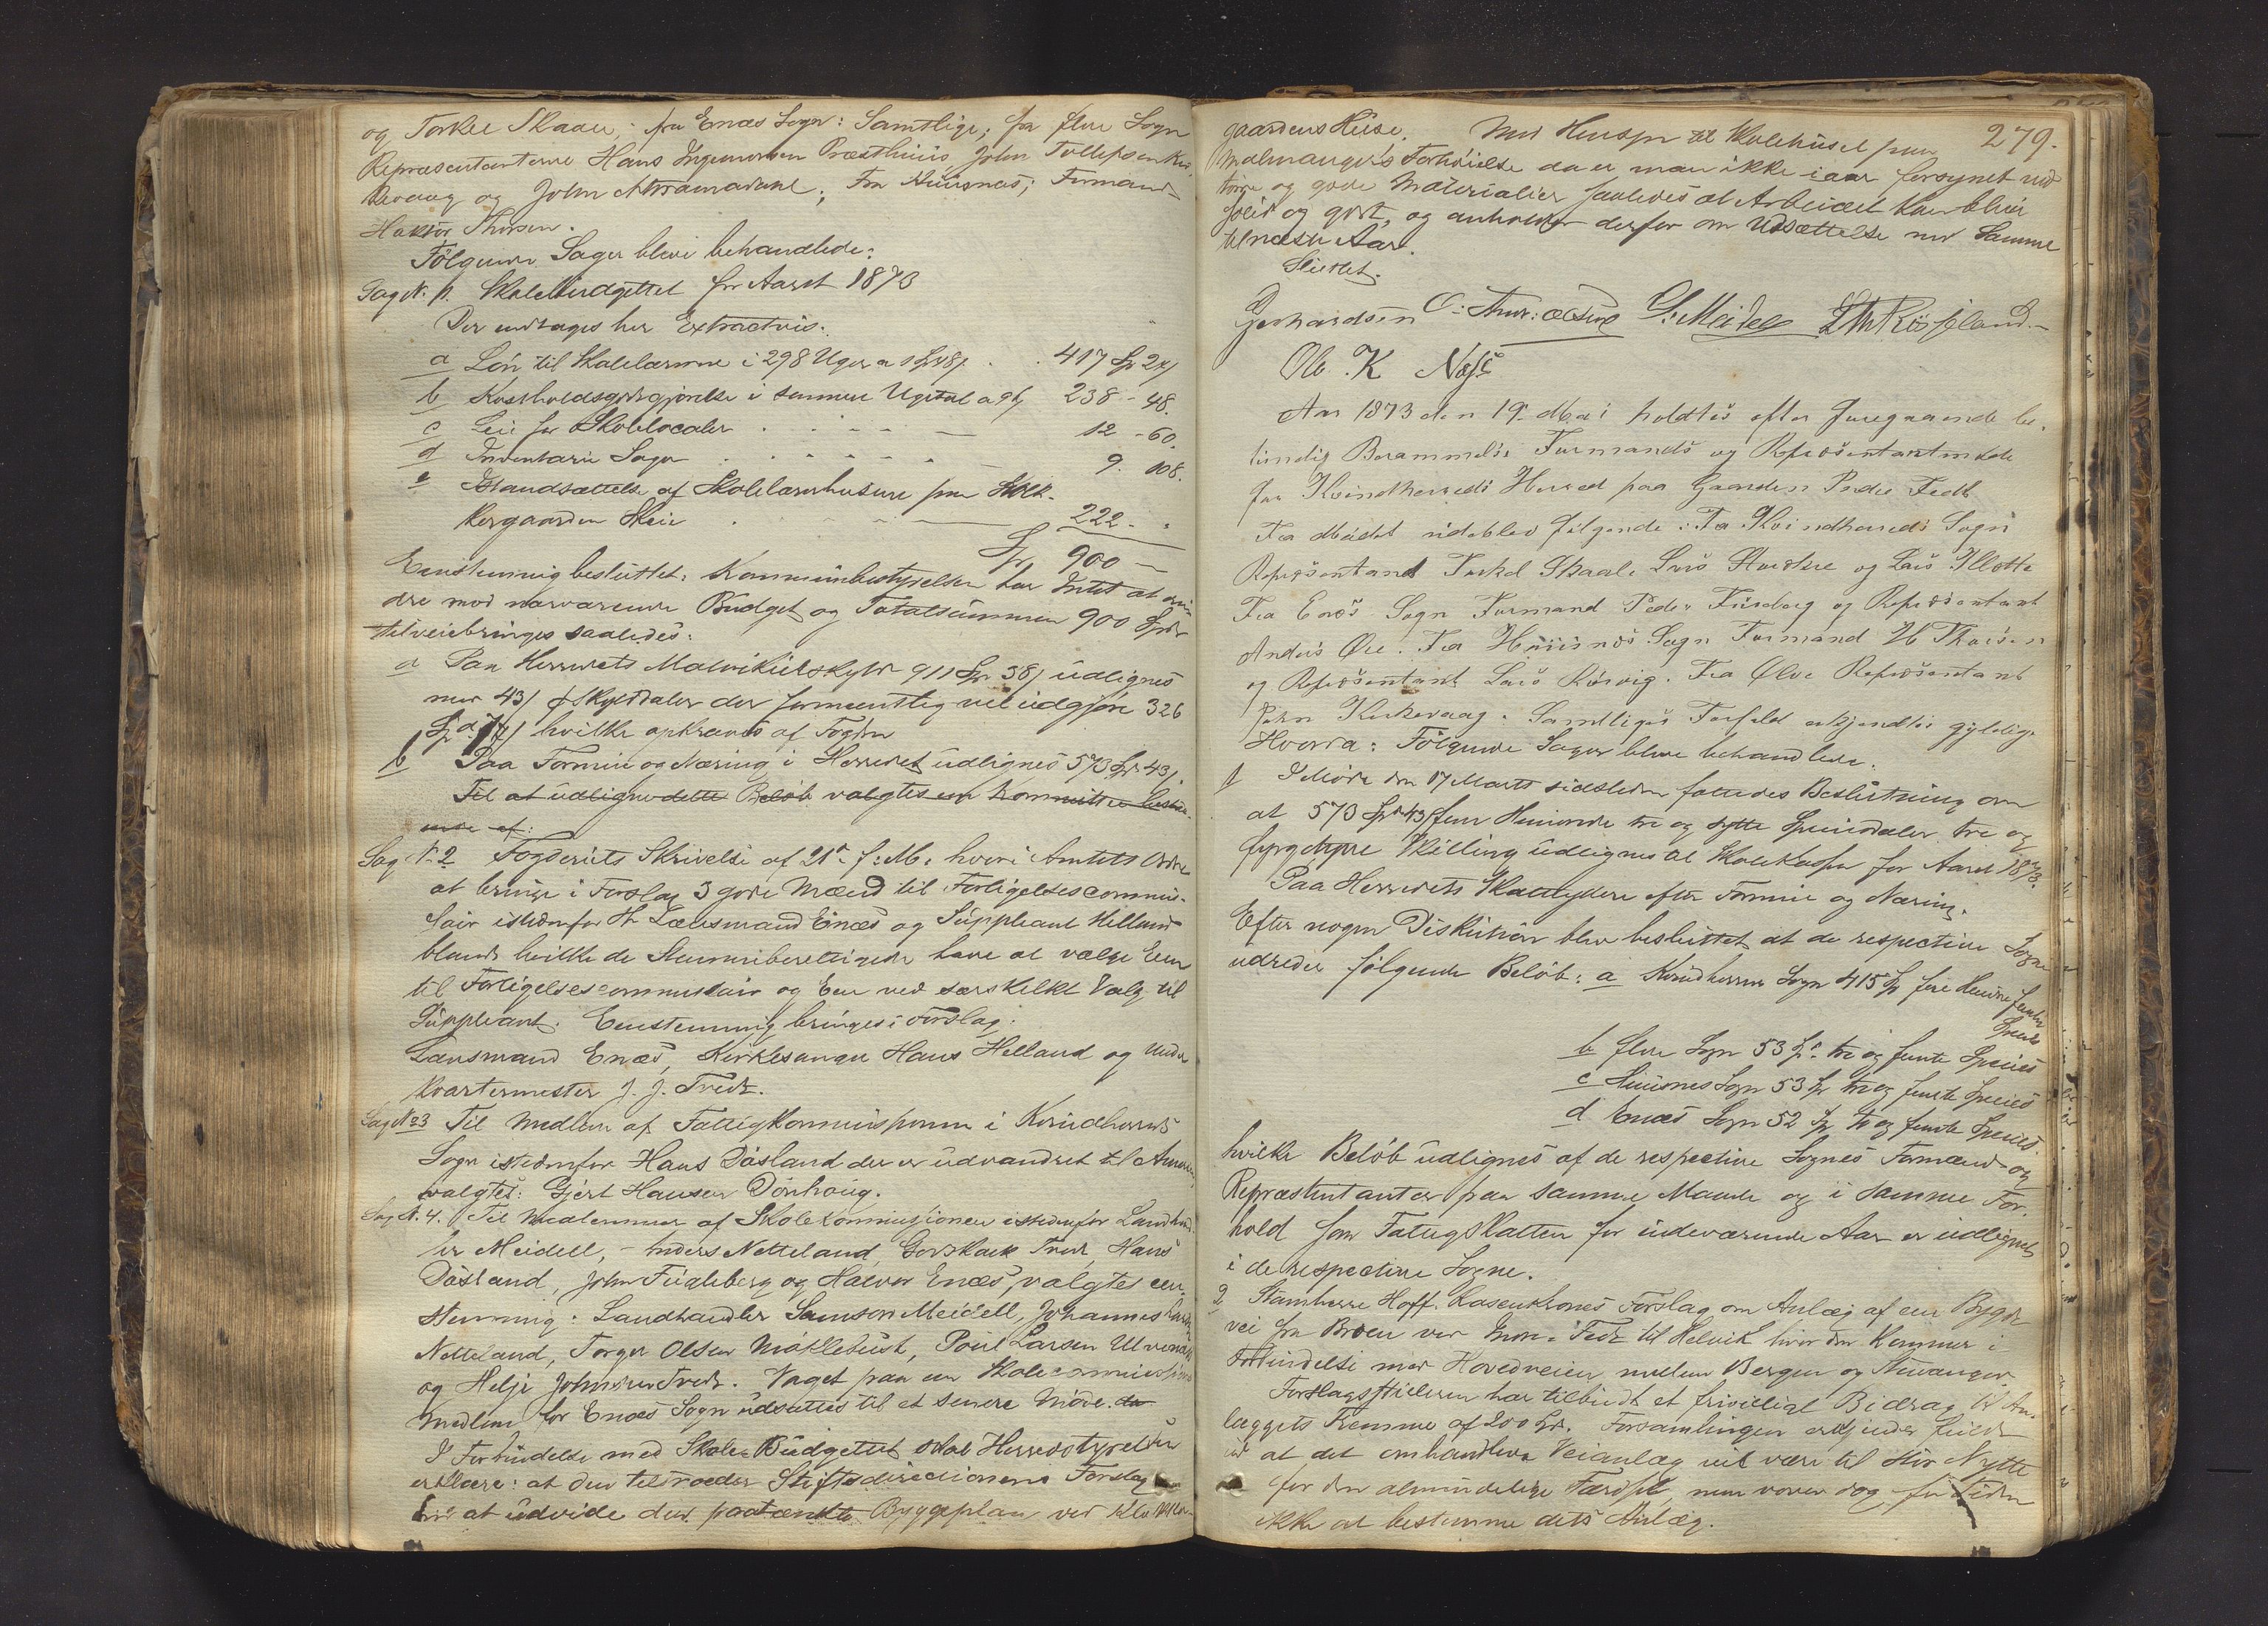 og Torkel Skaale; fra Enæs Sogn: Samtlige; fra Ølve Sogn
Repræsentanterne Hans Ingemorsen Præsthuus, John Tollefsen Kir-
kevaag og John Atramadahl; Fra Huusnæs; Formand
Haktor Thorsen.
Følgende Sager bleve behandlede:
Sag N. 1. Skolebudgettet for Aaret 1873
Der indtages her Extractvis.
a Løn til Skolelærerne i 298 Uger a 1 Spd 48 s 417 Sp 24 s
b Kostholdsgodtgjørelse i samme Ugetal a 96 s 238 - 48.
c Leie for Skolelocaler 12 - 60.
d Inventarie Sager 9. 108.
e Istandsættelse af Skolelærerhusene paa Klok-
kergaarden Skeie 222 - "
Sp 900 -
Eenstemmig besluttet: Kommunbestyrelsen har Intet at erin-
dre mod nærværende Budget og Totalsummen 900 Spdr
tilveiebringes saaledes:
a Paa Herredets Matrikulskyld 911 Spd 38 s udlignes
med 43 s pr Skylddaler der formeentlig vil udgjøre 326
Spd 77 s hvilke opkræves af Fogden
b Paa Formue og Næring i Herredet udlignes 573 Spd 43 s.
Til at udligne dette Beløb valgtes en Kommittee bestaa-
ende af:
Sag N. 2 Fogderiets Skrivelse af 21de f: M: hvori Amtets Ordre
at bringe i Forslag 3 gode Mænd til Forligelsescommis-
sair istedenfor Hr Lænsmand Enæs og Suppleant Helland
blandt hvilke de Stemmeberettigede have at vælge Een
til Forligelsescommissair og Een ved særskilt Valg til
Suppleant. Eenstemmig bringes i Forslag:
Lænsmand Enæs, Kirkesanger Hans Helland og Under
kvartermester J. J. Tvedt.
Sag N. 3 Til Medlem af Fattigkommissionen i Kvindherreds
Sogn istedenfor Hans Døsland der er udvandret til Amerika
valgtes: Gjert Hansen Dønhaug.
Sag N. 4. Til Medlemmer af Skolekommissionen istedenfor Landhand-
ler Meidell, - Anders Netteland, Godskalk Tved, Hans
Døsland, John Fugleberg og Halvor Enæs, valgtes een-
stemmig: Landhandler Samson Meidell, Johannes Larsen
Netteland, Torger Olsen Møklebust, Poul Larsen Ulvenæs
og Helje Johnsen Tvedt. Valget paa en Skolecommissions
medlem for Enæs Sogn udsættes til et senere Møde. da
I Forbindelse med Skole-Budgettet skal Herredstyrelsen
erklære: at den tiltræder Stiftsdirectionens Forslag
om at udvide den paatænkte Byggeplan ved Klokker-
279.
gaardens Huse. Med Hensyn til Skolehuset paa
Malmanger's Forhøielse da er man ikke iaar forsynet med
tørre og gode Materialier saaledes at Arbeidet kan blive
solid og godt, og anholder derfor om Udsættelse med Samme
til næste Aar.
Sluttet.
Gerhardsen O: S: Meidell
Ole K Næss
Aar 1873 den 19de Mai holdtes efter foregaaende be-
timelig Berammelse Formands og Repræsentantmøde
for Kvindherreds Herred paa Gaarden Nedre Tvedt
Fra Mødet udeblev følgende: Fra Kvindherreds Sogn
Repræsentant Torkel Skaale Lars Hvidsten og Lars Flotte
Fra Enæs Sogn Formand Peder Fureberg og Repræsentant
Anders Øie. Fra Huusnæs Sogn Formand H Thorsen
og Repræsentant Lars Rørvig. Fra Ølve Repræsentant
John Kirkevaag. Samtliges Forfald ærkjendtes gyldige.
Hvorda: Følgende Sager bleve behandlede.
1 I Møde den 17 Marts sidstleden fattedes Beslutning om
at 573 Spd 43 s fem Hundrede tre og sytte Speciedaler tre og
fyrgetyve Skilling udlignes til Skolekassen for Aaret 1873.
Paa Herredets Skatteydere efter Formue og Næring.
Efter nogen Diskution blev besluttet at de respective Sogne
udreder følgende Beløb: a Kvindherreds Sogn 415 Sp fire Hundrede femten
Species
b Ølve Sogn 53 Sp. tre og femte Species
c Huusnes Sogn 53 Sp tre og femte Species
d Enæs Sogn 52 Sp to og femte Species.
hvilke Beløb udlignes af de respective Sognes Formænd og
Repræsentanter paa samme Maade og i samme For-
hold som Fattigskatten for indeværende Aar er udlignet
i de respective Sogne.
2 Stamherre Hoff-Rosenkrones Forslag om Anlæg af en Bygde
vei fra Broen ved Indre-Tvedt til Helvik hvor den kommer i
Forbindelse med Hovedveien mellem Bergen og Stavanger.
Forslagsstilleren har tilbudt et frivilligt Bidrag til An-
læggets Fremme af 200 Spd. Forsamlingen erkjender fuldt
ud at det omhandlede Veianlæg vil være til stor Nytte
for den almindelige Færdsel, men vover dog for Tiden
ikke at bestemme dets Anlæg.